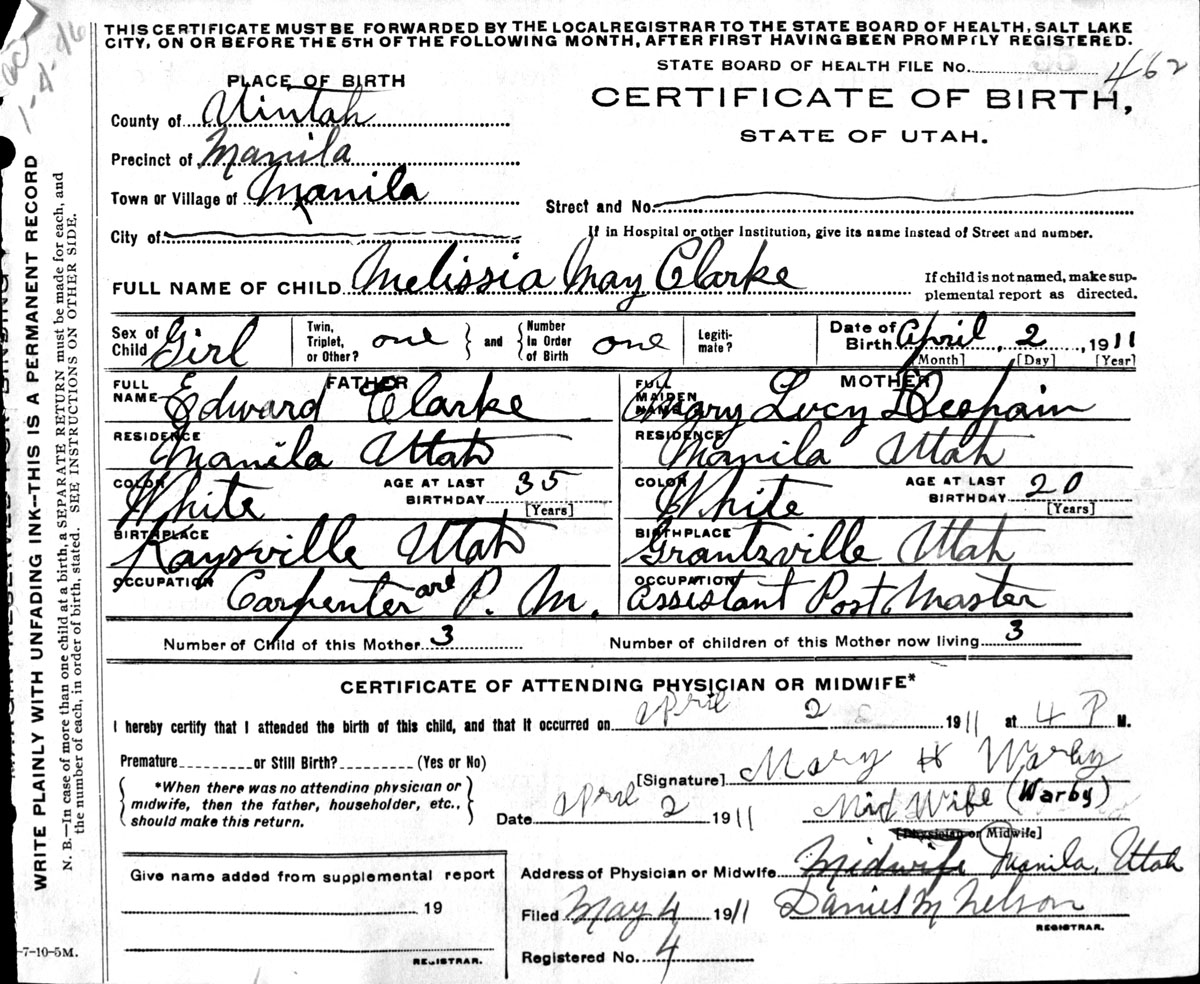 THIS CERTIFICATE MUST BE FORWARDED BY THE LOCAL REGISTRAR TO THE STATE BOARD OF HEALTH, SALT LAKE
CITY, ON OR BEFORE THE 5TH OF THE FOLLOWING MONTH, AFTER FIRST HAVING BEEN PROMPTLY REGISTERED.
STATE BOARD OF HEALTH FILE No. 462
PLACE OF BIRTH
CERTIFICATE OF BIRTH,
STATE OF UTAH.
County of Uintah
Precinct of Manila
Town or Village of Manila
Street and No.
City of
If in Hospital or other Institution, give its name instead of Street and number.
FULL NAME OF CHILD Melissia May Clarke
If child is not named, make sup-
plemental report as directed.
Sex of Child Girl
Twin, Triplet, or Other? one
and
Number In Order of Birth one
Legiti-mate?
Date of Birth April 2, 1911
[Month] [Day] [Year]
FATHER
FULL NAME Edward Clarke
RESIDENCE Manila Utah
COLOR White AGE AT LAST BIRTHDAY 35
[Years]
BIRTHPLACE Kaysville Utah
OCCUPATION Carpenter and P. M.
MOTHER
FULL MAIDEN NAME Mary Lucy Despain
RESIDENCE Manila Utah
COLOR White AGE AT LAST BIRTHDAY 20
[Years]
BIRTHPLACE Grantsville Utah
OCCUPATION Assistant Post Master
Number of Child of this Mother 3
Number of children of this Mother now living 3
CERTIFICATE OF ATTENDING PHYSICIAN OR MIDWIFE*
I hereby certify that I attended the birth of this child, and that it occurred on April 2 1911 at 4 P M.
Premature or Still Birth? (Yes or No)
*When there was no attending physician or
midwife, then the father, householder, etc.,
should make this return.
[Signature] Mary H Warby
Date April 2 1911
Mid Wife (Warby)
[Physician or Midwife]
Give name added from supplemental report
19
REGISTRAR.
Address of Physician or Midwife Midwife Manila, Utah
Filed May 4 1911 Daniel M Nelson
REGISTRAR.
Registered No. 4
7-10-5M.
WRITE PLAINLY WITH UNFADING INK—THIS IS A PERMANENT RECORD
N. B.—In case of more than one child at a birth, a SEPARATE RETURN must be made for each, and
the number of each, in order of birth, stated. SEE INSTRUCTIONS ON OTHER SIDE.